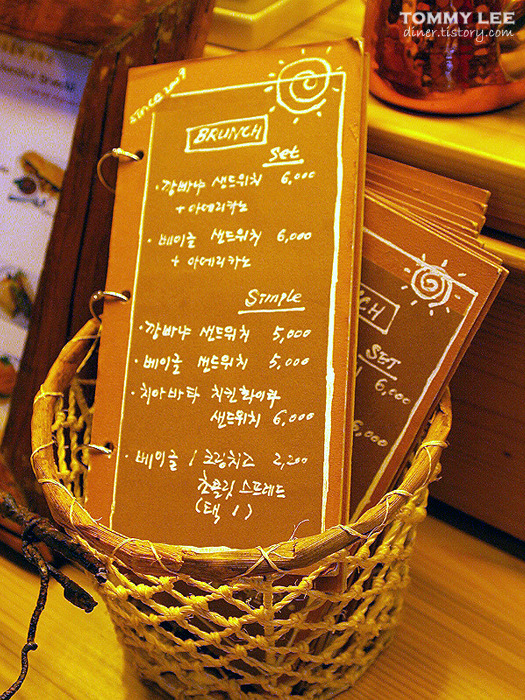 TOMMY LEE
diner.tistory.com
since 2007
BRUNCH
Set
· 깜빠뉴 샌드위치 6,000
+ 아메리카노
· 베이글 샌드위치 6,000
+ 아메리카노
Simple
· 깜빠뉴 샌드위치 5,000
· 베이글 샌드위치 5,000
· 치아바타 치킨화이타
샌드위치 6,000
· 베이글 / 크림치즈 2,200
초콜릿 스프레드
(택 1)
SET
6,000
6,000